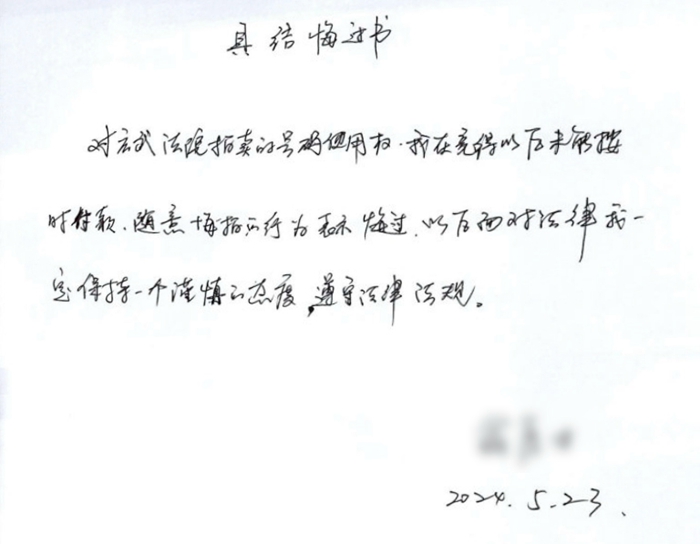 具结悔过书
对玄武法院拍卖的号码使用权.我在竞得以后未能按
时付款、随意悔拍的行为表示悔过,以后面对法律我一
定保持一个谨慎的态度,遵守法律法规。
2024.5.23.